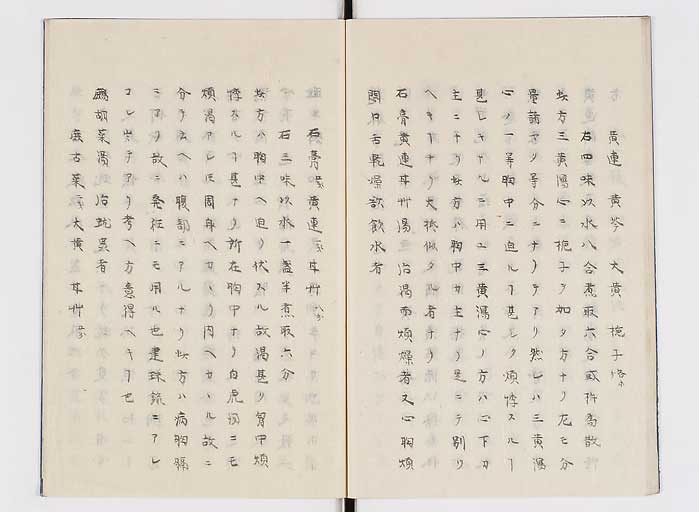 黄連 黄芩 大黄 梔子
右四味以水八合煮取六合或杵為散
此方三黄瀉心ニ梔子ヲ加タ方ナリ尤モ分
量諸者ノ等分ニナリテアリ然レハ三黄瀉
心ノ一等胸中ニ迫ルヿ甚シク煩悸スルヿ
甚シキナルニ用ユ三黄瀉心ノ方ハ心下カ
主ニナリ此方ハ胸中カ主ナリ是ニテ別リ
ヘキヿナリ大抵似タル者ナリ
石膏黄連甘艸湯 治渇而煩燥者又心胸煩
悶口舌乾燥欲飲水者
石膏 黄連 甘艸
右三味以水一盞半煮取六分
此方ハ胸中ヘ迫リ伏スル故渇甚シ胃中煩
悸スルヿ甚ナリ所在胸中ナリ白虎湯ニモ
煩渇アレ𪜈周身ヘカヽリ内ヘカヽル故ニ
分チ云ヘハ腹部ニアルナリ此方ハ病胸膈
ニアリ故ニ発狂ニモ用ル也建珠録ニアレ
コレ出テアリ考ヘ方意得ヘキヿ也
鷓胡菜湯 治蚘虫者
鹿古菜 大黄 甘艸